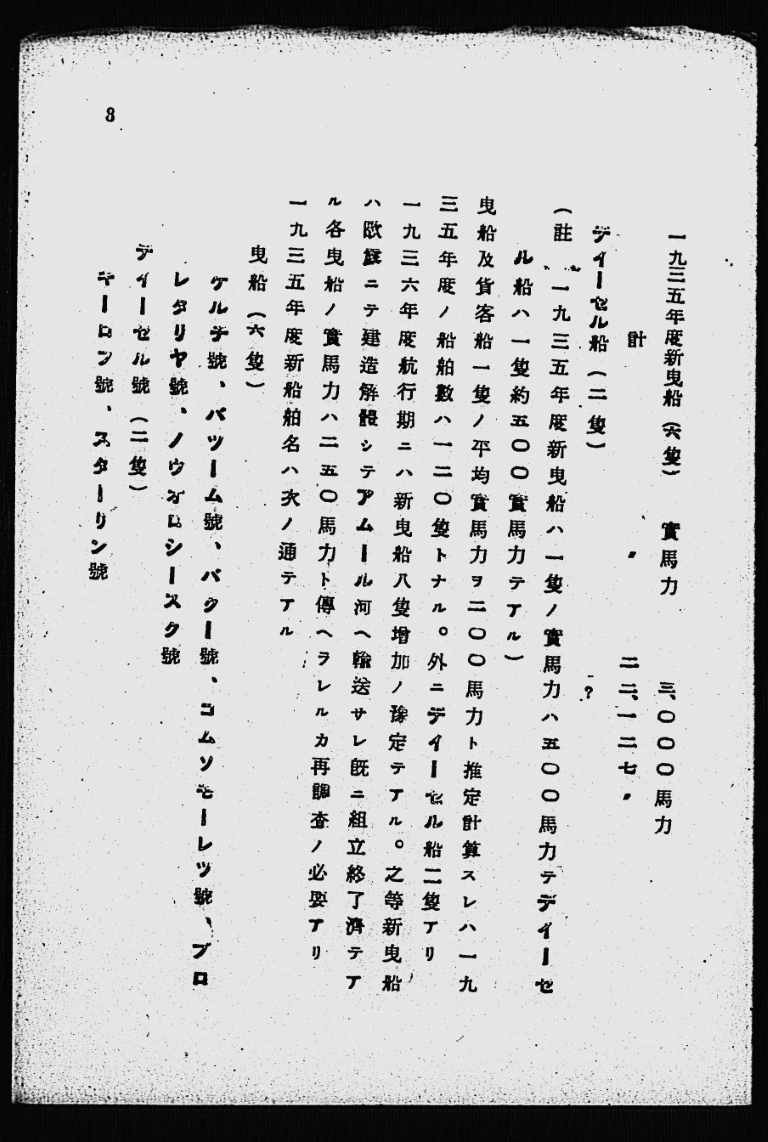 一九三五年度新曳船（六隻）　實馬力　三、〇〇〇馬力
計　〃　二二、一二七〃
デイーゼル船（二隻）　？
（註　一九三五年度新曳船ハ一隻ノ實馬力ハ五〇〇馬力テデイーセ
ル船ハ一隻約五〇〇實馬力テアル）
曳船及貨客船一隻ノ平均實馬力ヲ二〇〇馬力ト推定計算スレハ一九
三五年度ノ船舶數ハ一二〇隻トナル。外ニデイーゼル船二隻アリ
一九三六年度航行期ニハ新曳船八隻增加ノ豫定テアル。之等新曳船
ハ歐蘇ニテ建造解體シテアムール河ヘ輸送サレ既ニ組立終了濟テア
ル各曳船ノ實馬力ハ二五〇馬力ト傳ヘラレルカ再調査ノ必要アリ
一九三五年度新船舶名ハ次ノ通テアル
曳船（六隻）
ケルチ號、バツーム號、バクー號、コムソモーレツ號、プロ
レタリヤ號、ノウオロシースク號
デイーゼル號（二隻）
キーロフ號、スターリン號
8